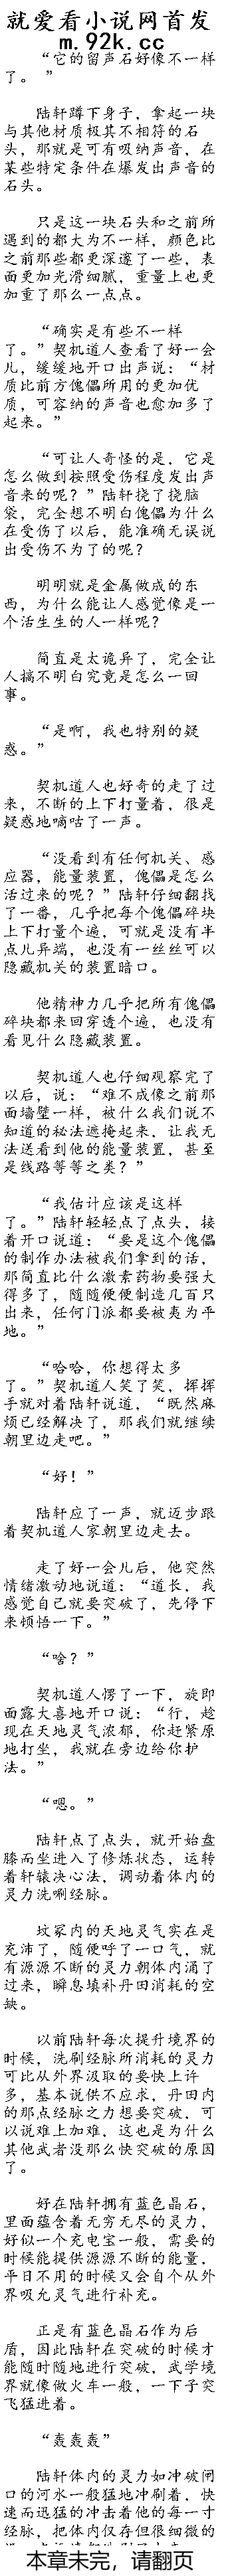 就爱看小说网首发
m.92k.cc
“它的留声石好像不一样
了。　”
陆轩蹲下身子，拿起一块
与其他材质极其不相符的石
头，那就是可有吸纳声音，在
某些特定条件在爆发出声音的
石头。
只是这一块石头和之前所
遇到的都大为不一样，颜色比
之前那些都更深邃了一些，表
面更加光滑细腻，重量上也更
加重了那么一点点。
“确实是有些不一样
了。”契机道人查看了好一会
儿，缓缓地开口出声说：“材
质比前方傀儡所用的更加优
质，可容纳的声音也愈加多了
起来。”
“可让人奇怪的是，它是
怎么做到按照受伤程度发出声
音来的呢？”陆轩挠了挠脑
袋，完全想不明白傀儡为什么
在受伤了以后，能准确无误说
出受伤不为了的呢？
明明就是金属做成的东
西，为什么能让人感觉像是一
个活生生的人一样呢？
简直是太诡异了，完全让
人搞不明白究竟是怎么一回
事。
“是啊，我也特别的疑
惑。”
契机道人也好奇的走了过
来，不断的上下打量着，很是
疑惑地嘀咕了一声。
“没看到有任何机关、感
应器，能量装置，傀儡是怎么
活过来的呢？”陆轩仔细翻找
了一番，几乎把每个傀儡碎块
上下打量个遍，可就是没有半
点儿异端，也没有一丝丝可以
隐藏机关的装置暗口。
他精神力几乎把所有傀儡
碎块都来回穿透个遍，也没有
看见什么隐藏装置。
契机道人也仔细观察完了
以后，说：“难不成像之前那
面墙壁一样，被什么我们说不
知道的秘法遮掩起来，让我无
法送看到他的能量装置，甚至
是线路等等之类？”
“我估计应该是这样
了。”陆轩轻轻点了点头，接
着开口说道：“要是这个傀儡
的制作办法被我们拿到的话，
那简直比什么激素药物要强大
得多了，随随便便制造几百只
出来，任何门派都要被夷为平
地。”
“哈哈，你想得太多
了。”契机道人笑了笑，挥挥
手就对着陆轩说道，“既然麻
烦已经解决了，那我们就继续
朝里边走吧。”
“好！”
陆轩应了一声，就迈步跟
着契机道人家朝里边走去。
走了好一会儿后，他突然
情绪激动地说道：“道长，我
感觉自己就要突破了，先停下
来顿悟一下。”
“啥？”
契机道人愣了一下，旋即
面露大喜地开口说：“行，趁
现在天地灵气浓郁，你赶紧原
地打坐，我就在旁边给你护
法。”
“嗯。”
陆轩点了点头，就开始盘
膝而坐进入了修炼状态，运转
着轩辕决心法，调动着体内的
灵力洗唰经脉。
坟冢内的天地灵气实在是
充沛了，随便呼了一口气，就
有源源不断的灵力朝体内涌了
过来，瞬息填补丹田消耗的空
缺。
以前陆轩每次提升境界的
时候，洗刷经脉所消耗的灵力
可比从外界汲取的要快上许
多，基本说供不应求，丹田内
的那点经脉之力想要突破，可
以说难上加难，这也是为什么
其他武者没那么快突破的原因
了。
好在陆轩拥有蓝色晶石，
里面蕴含着无穷无尽的灵力，
好似一个充电宝一般，需要的
时候能提供源源不断的能量，
平日不用的时候又会自个从外
界吸允灵气进行补充。
正是有蓝色晶石作为后
盾，因此陆轩在突破的时候才
能随时随地进行突破，武学境
界就像做火车一般，一下子突
飞猛进着。
“轰轰轰”
陆轩体内的灵力如冲破闸
口的河水一般猛地冲刷着，快
速而迅猛的冲击着他的每一寸
经脉，把体内仅存但很细微的
本章未完，请翻页